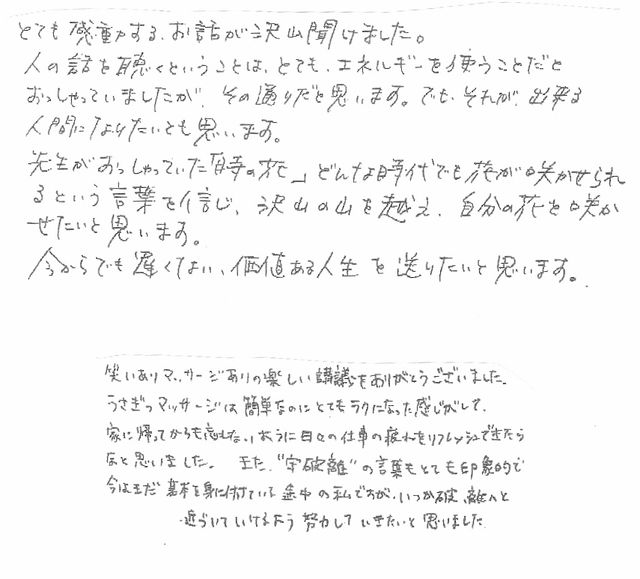 とても感動する、お話が沢山聞けました。
人の話を聴くということは、とても、エネルギーを使うことだと
おっしゃっていましたが、その通りだと思います。でも、それが、出来る
人間になりたいとも思います。
先生がおっしゃっていた「時の花」どんな時代でも花が咲かせられ
るという言葉を信じ、沢山の山を越え、自分の花を咲か
せたいと思います。
今からでも遅くない、価値ある人生を送りたいと思います。
笑いありマッサージありの楽しい講義をありがとうございました。
うさぎっマッサージは簡単なのにとてもラクになった感じがして、
家に帰ってからも忘れないように日々の仕事の疲れをリフレッシュできたら
なと思いました。また、"守破離"の言葉もとても印象的で
今はまだ基本を身に付けている途中の私ですが、いつか破、離へと
近づいていけるよう努力していきたいと思いました